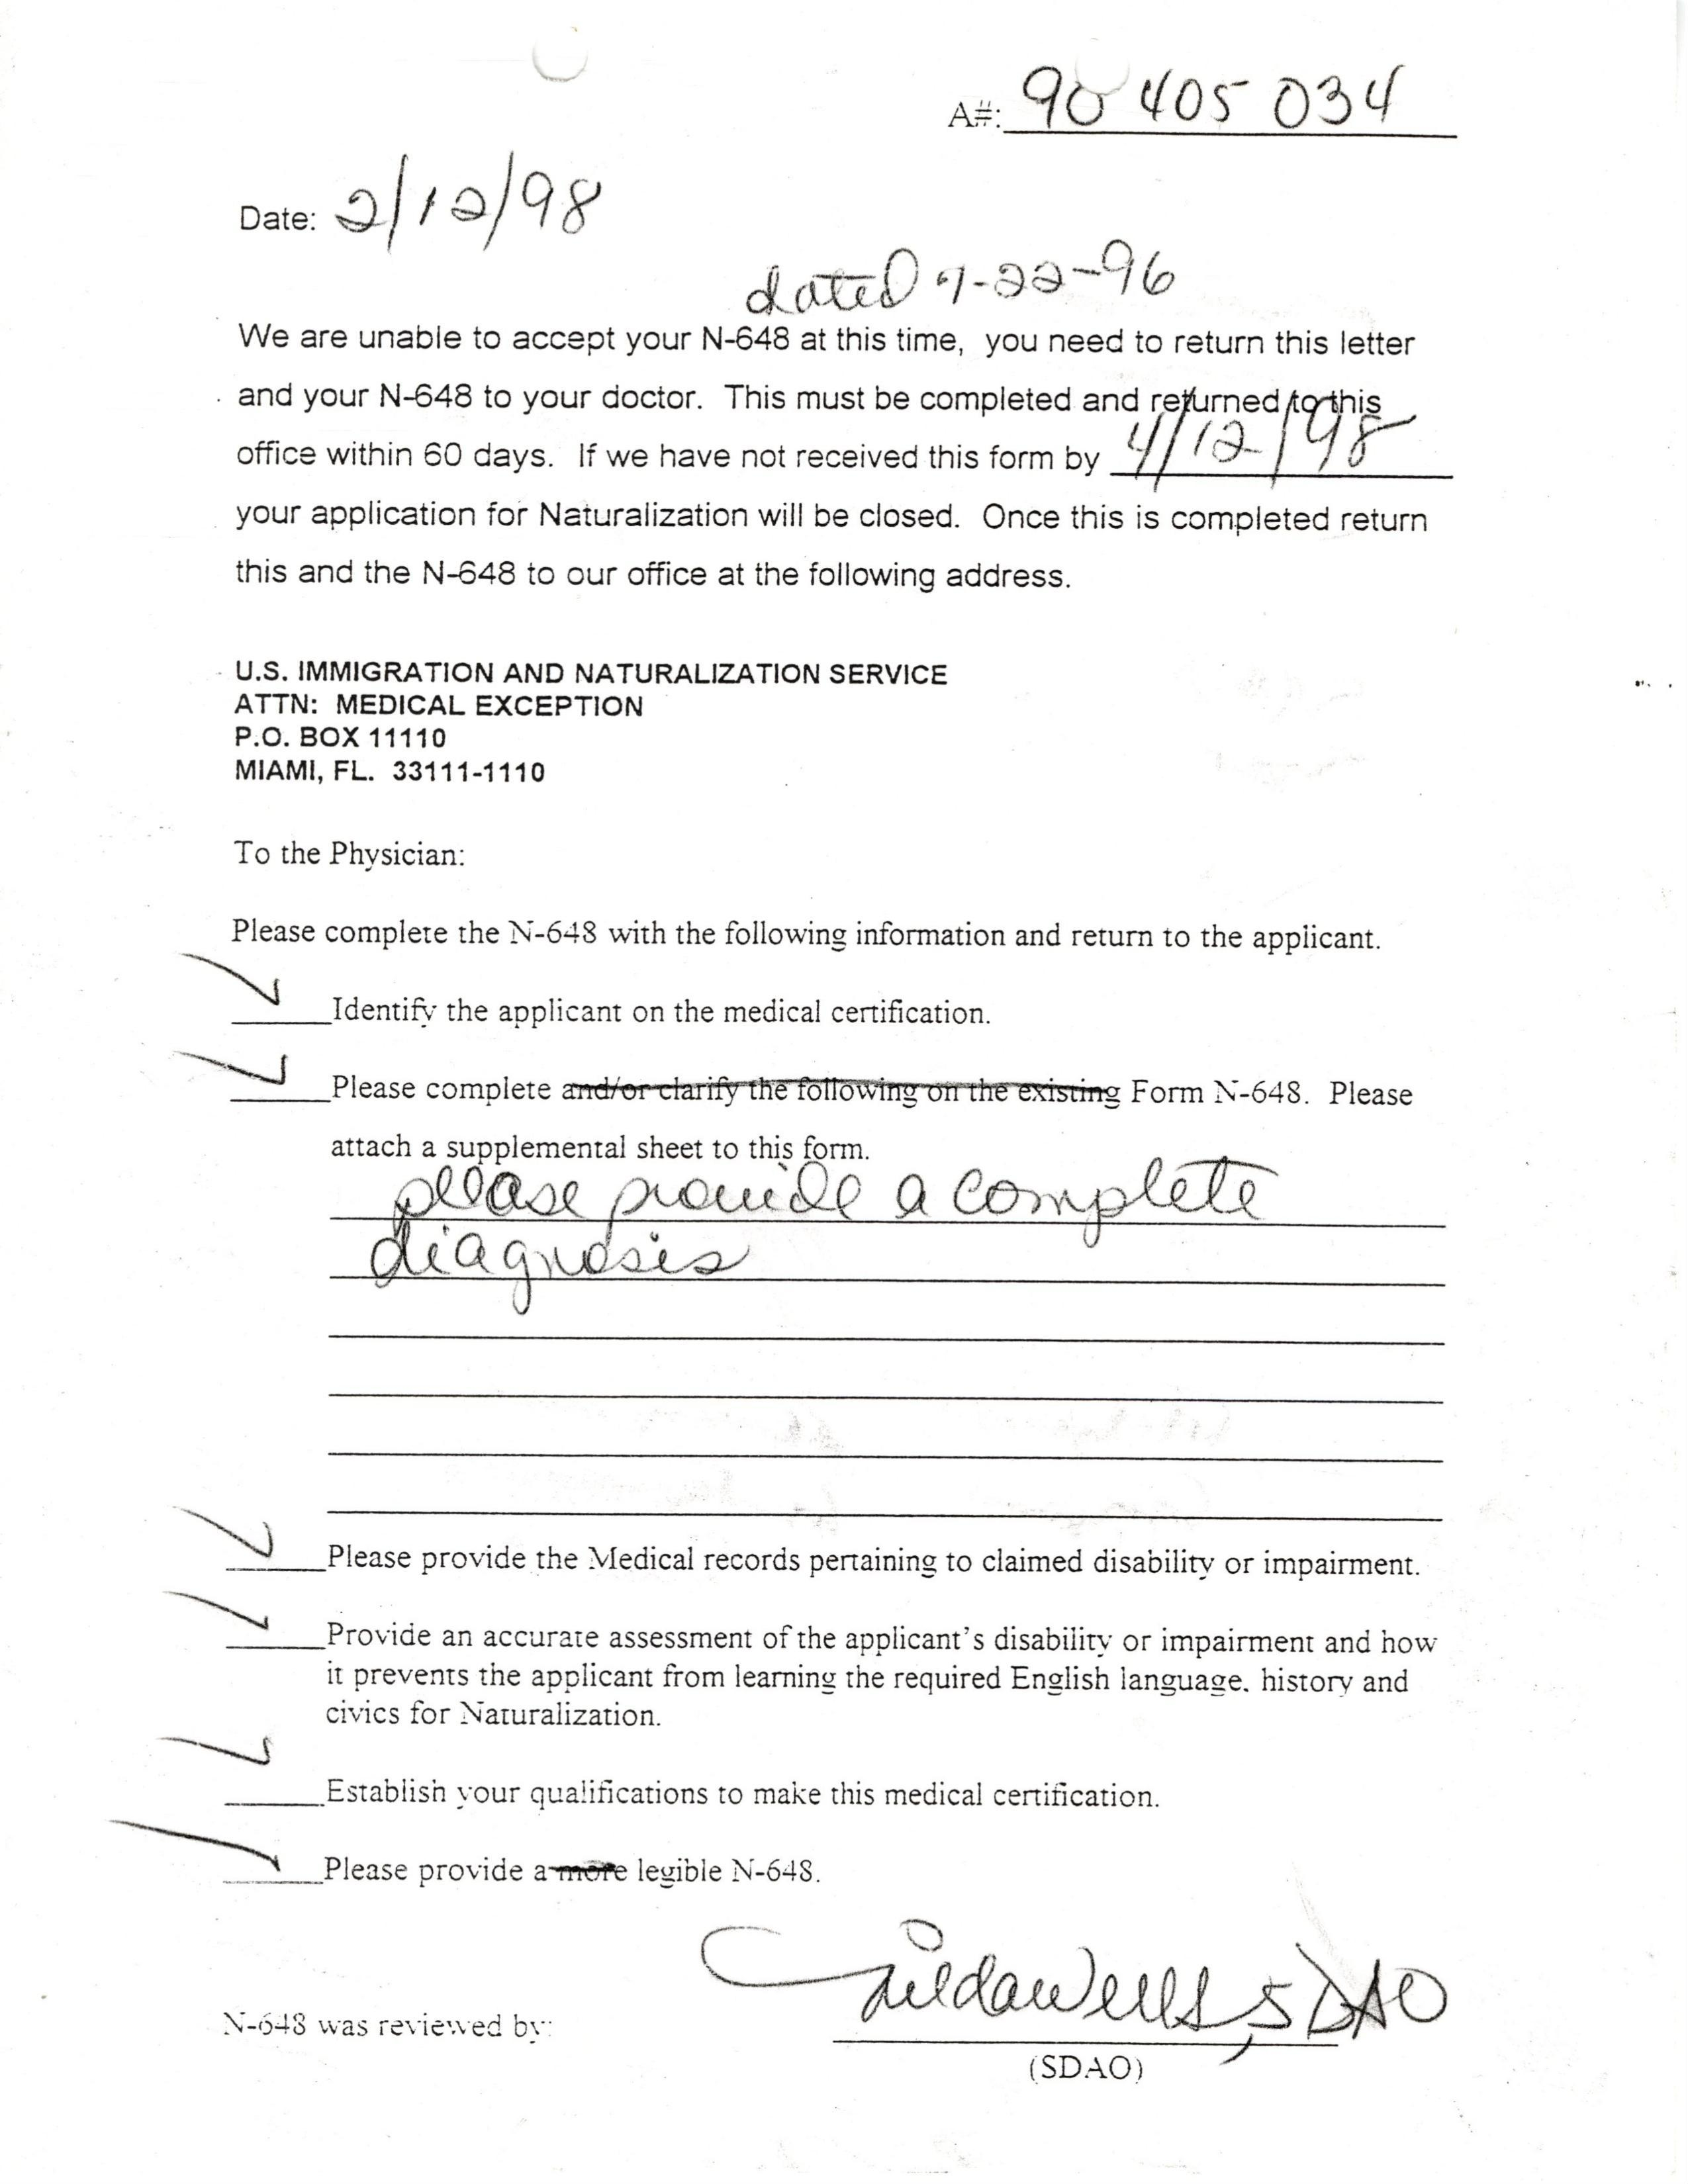 A#: 90 405 034
Date: 2/12/98
dated 7-22-96
We are unable to accept your N-648 at this time, you need to return this letter
and your N-648 to your doctor. This must be completed and returned to this
office within 60 days. If we have not received this form by 4/12/98
your application for Naturalization will be closed. Once this is completed return
this and the N-648 to our office at the following address.
U.S. IMMIGRATION AND NATURALIZATION SERVICE
ATTN: MEDICAL EXCEPTION
P.O. BOX 11110
MIAMI, FL. 33111-1110
To the Physician:
Please complete the N-648 with the following information and return to the applicant.
Identify the applicant on the medical certification.
Please complete and/or clarify the following on the existing Form N-648. Please
attach a supplemental sheet to this form.
please provide a complete
diagnosis
Please provide the Medical records pertaining to claimed disability or impairment.
Provide an accurate assessment of the applicant's disability or impairment and how
it prevents the applicant from learning the required English language, history and
civics for Naturalization.
Establish your qualifications to make this medical certification.
Please provide a more legible N-648.
N-648 was reviewed by: Wells, SDAO
(SDAO)